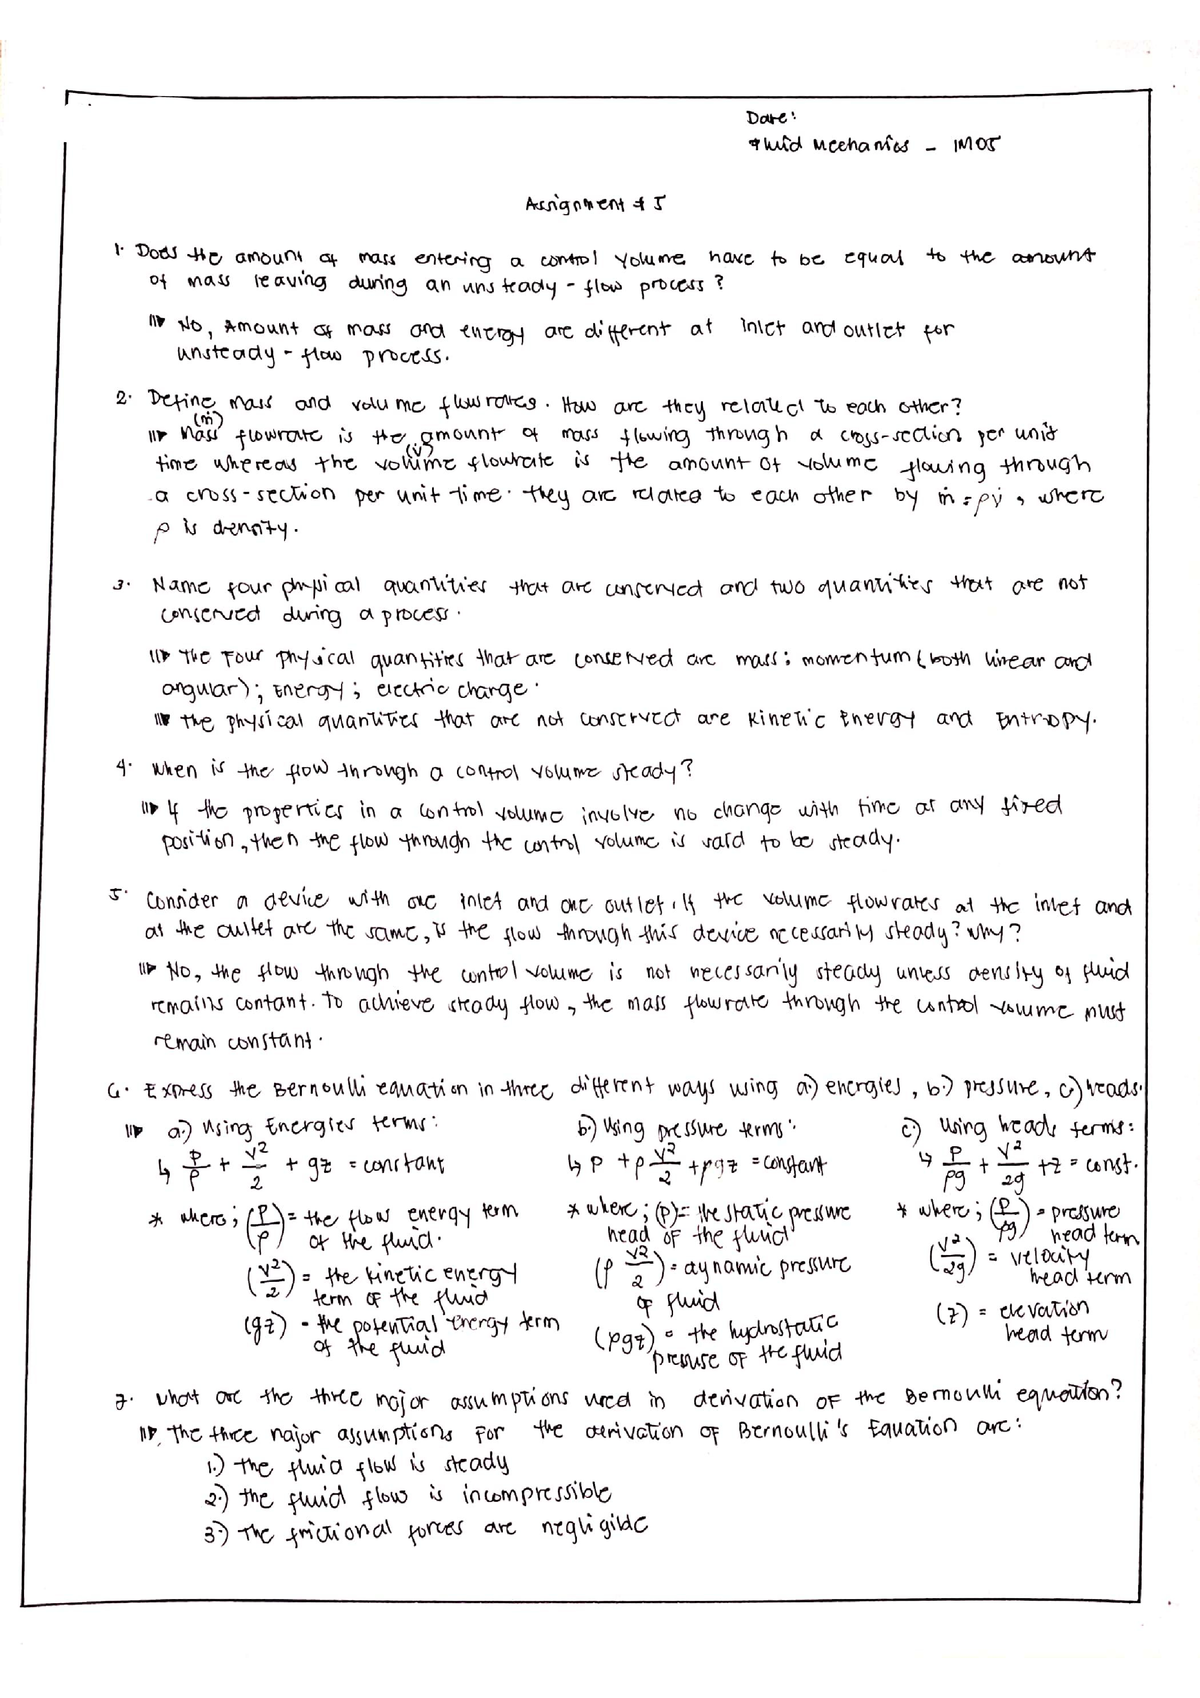 Date:
Fluid Mechanics - IM05
Assignment # 5
1. Does the amount of mass entering a control volume have to be equal to the amount
of mass leaving during an unsteady - flow process?
No, Amount of mass and energy are different at inlet and outlet for
unsteady - flow process.
2. Define mass and volume flowrates. How are they related to each other?
(ṁ)
Mass flowrate is the amount of mass flowing through a cross-section per unit
(v̇)
time whereas the volume flowrate is the amount of volume flowing through
a cross-section per unit time. They are related to each other by ṁ = ρv̇, where
ρ is density.
3. Name four physical quantities that are conserved and two quantities that are not
conserved during a process.
The Four physical quantities that are conserved are mass; momentum (both linear and
angular); Energy; electric charge.
The physical quantities that are not conserved are Kinetic Energy and Entropy.
4. When is the flow through a control volume steady?
If the properties in a control volume involve no change with time at any fixed
position, then the flow through the control volume is said to be steady.
5. Consider a device with one inlet and one outlet. If the volume flowrates at the inlet and
at the outlet are the same, is the flow through this device necessarily steady? Why?
No, the flow through the control volume is not necessarily steady unless density of fluid
remains contant. To achieve steady flow, the mass flowrate through the control volume must
remain constant.
6. Express the Bernoulli equation in three different ways using a.) energies, b.) pressure, c.) heads.
a.) Using Energies terms: b.) Using pressure terms: c.) Using heads terms:
↳ P/ρ + V²/2 + gz = constant ↳ P + ρ V²/2 + ρgz = constant ↳ P/ρg + V²/2g + z = const.
* where; (P/ρ) = the flow energy term * where; (P) = the static pressure * where; (P/ρg) = pressure
of the fluid. head of the fluid head term
(V²/2) = the kinetic energy (ρ V²/2) = dynamic pressure (V²/2g) = velocity
term of the fluid of fluid head term
(gz) = the potential energy term (ρgz) = the hydrostatic (z) = elevation
of the fluid pressure of the fluid head term
7. What are the three major assumptions used in derivation of the Bernoulli equation?
The three major assumptions for the derivation of Bernoulli's Equation are:
1.) The fluid flow is steady
2.) The fluid flow is incompressible
3.) The frictional forces are negligible